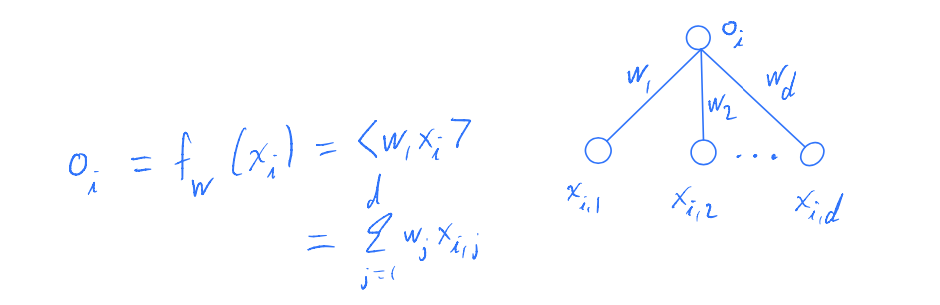 o_i = f_w (x_i) = <w, x_i>
= Σ_{j=1}^{d} w_j x_{i,j}
o_i
w_1 w_2 w_d
...
x_{i,1} x_{i,2} x_{i,d}